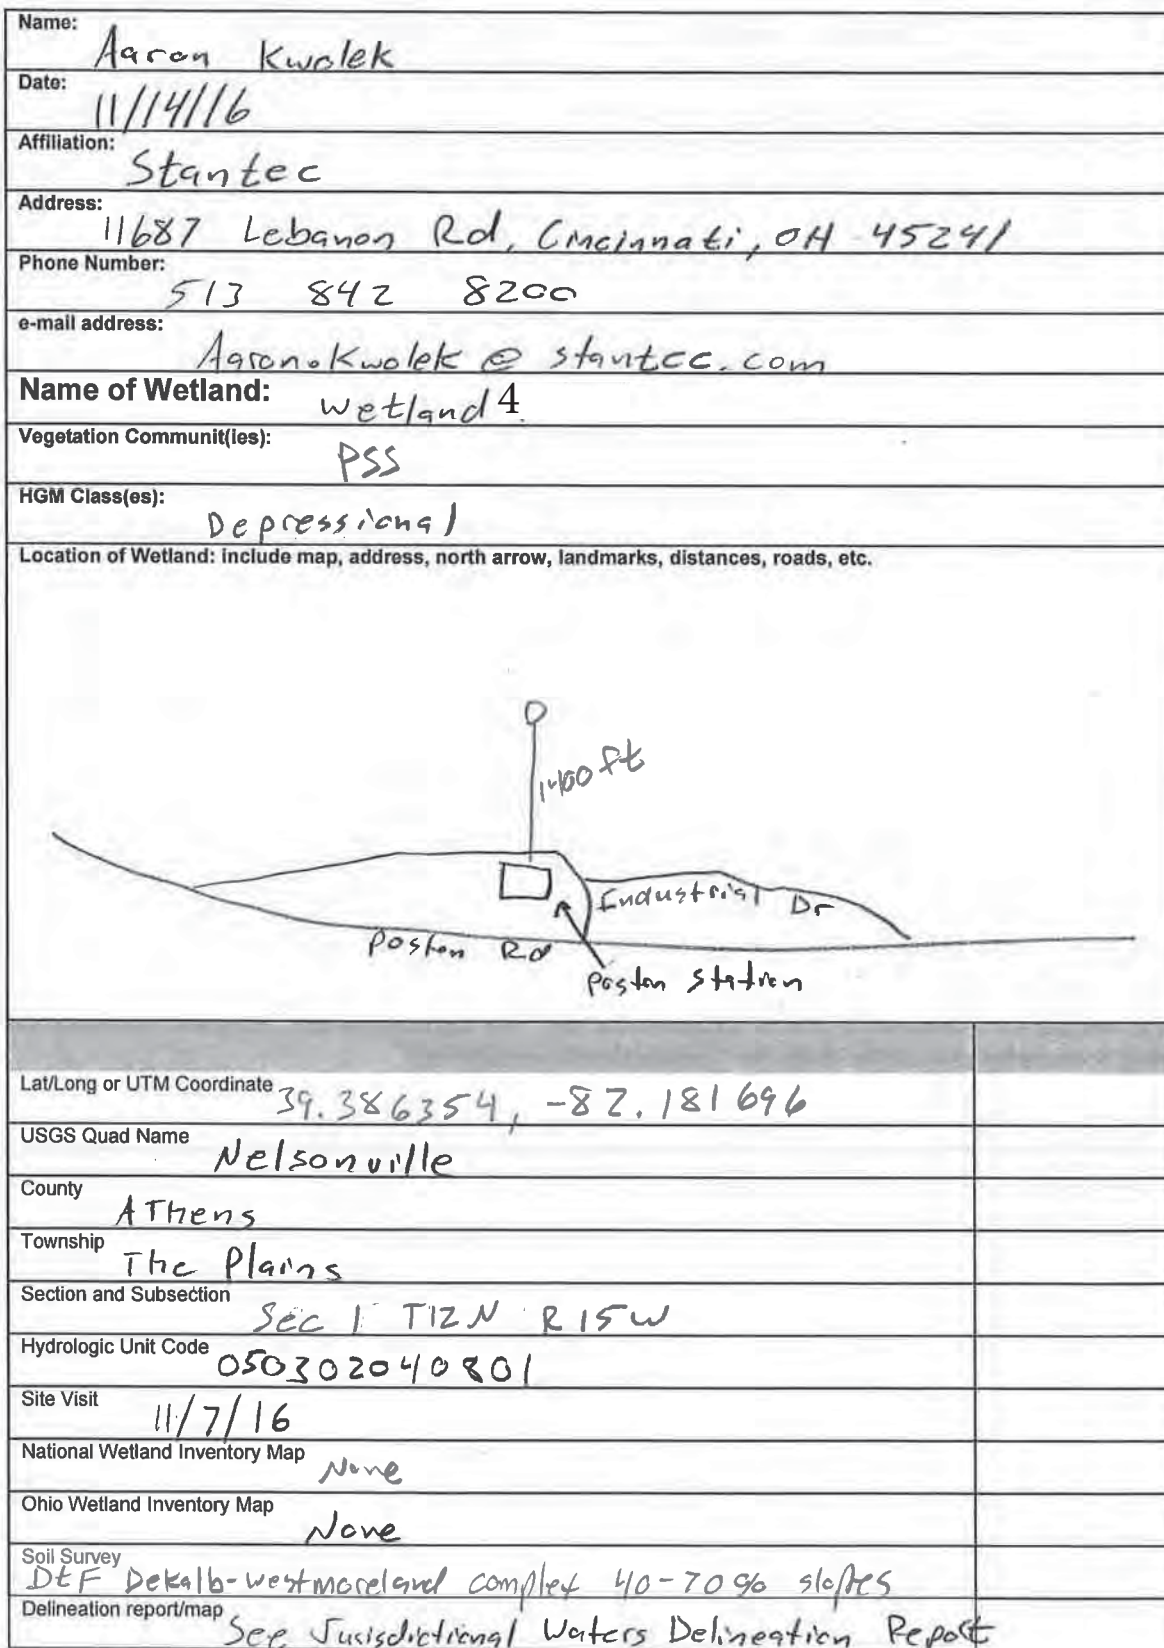 Name:
Aaron Kwolek
Date:
11/14/16
Affiliation:
Stantec
Address:
11687 Lebanon Rd, Cincinnati, OH 45241
Phone Number:
513 842 8200
e-mail address:
Aaron.Kwolek @ stantec.com
Name of Wetland: Wetland 4
Vegetation Communit(ies):
PSS
HGM Class(es):
Depressional
Location of Wetland: include map, address, north arrow, landmarks, distances, roads, etc.
ft
Industrial Dr
Poston Rd
Poston Station
Lat/Long or UTM Coordinate 39.386354, -82.181696
USGS Quad Name
Nelsonville
County
Athens
Township
The Plains
Section and Subsection
Sec 1 T12N R15W
Hydrologic Unit Code
050302040801
Site Visit
11/7/16
National Wetland Inventory Map
None
Ohio Wetland Inventory Map
None
Soil Survey
DtF Dekalb-westmoreland complex 40-70% slopes
Delineation report/map
See Jurisdictional Waters Delineation Report